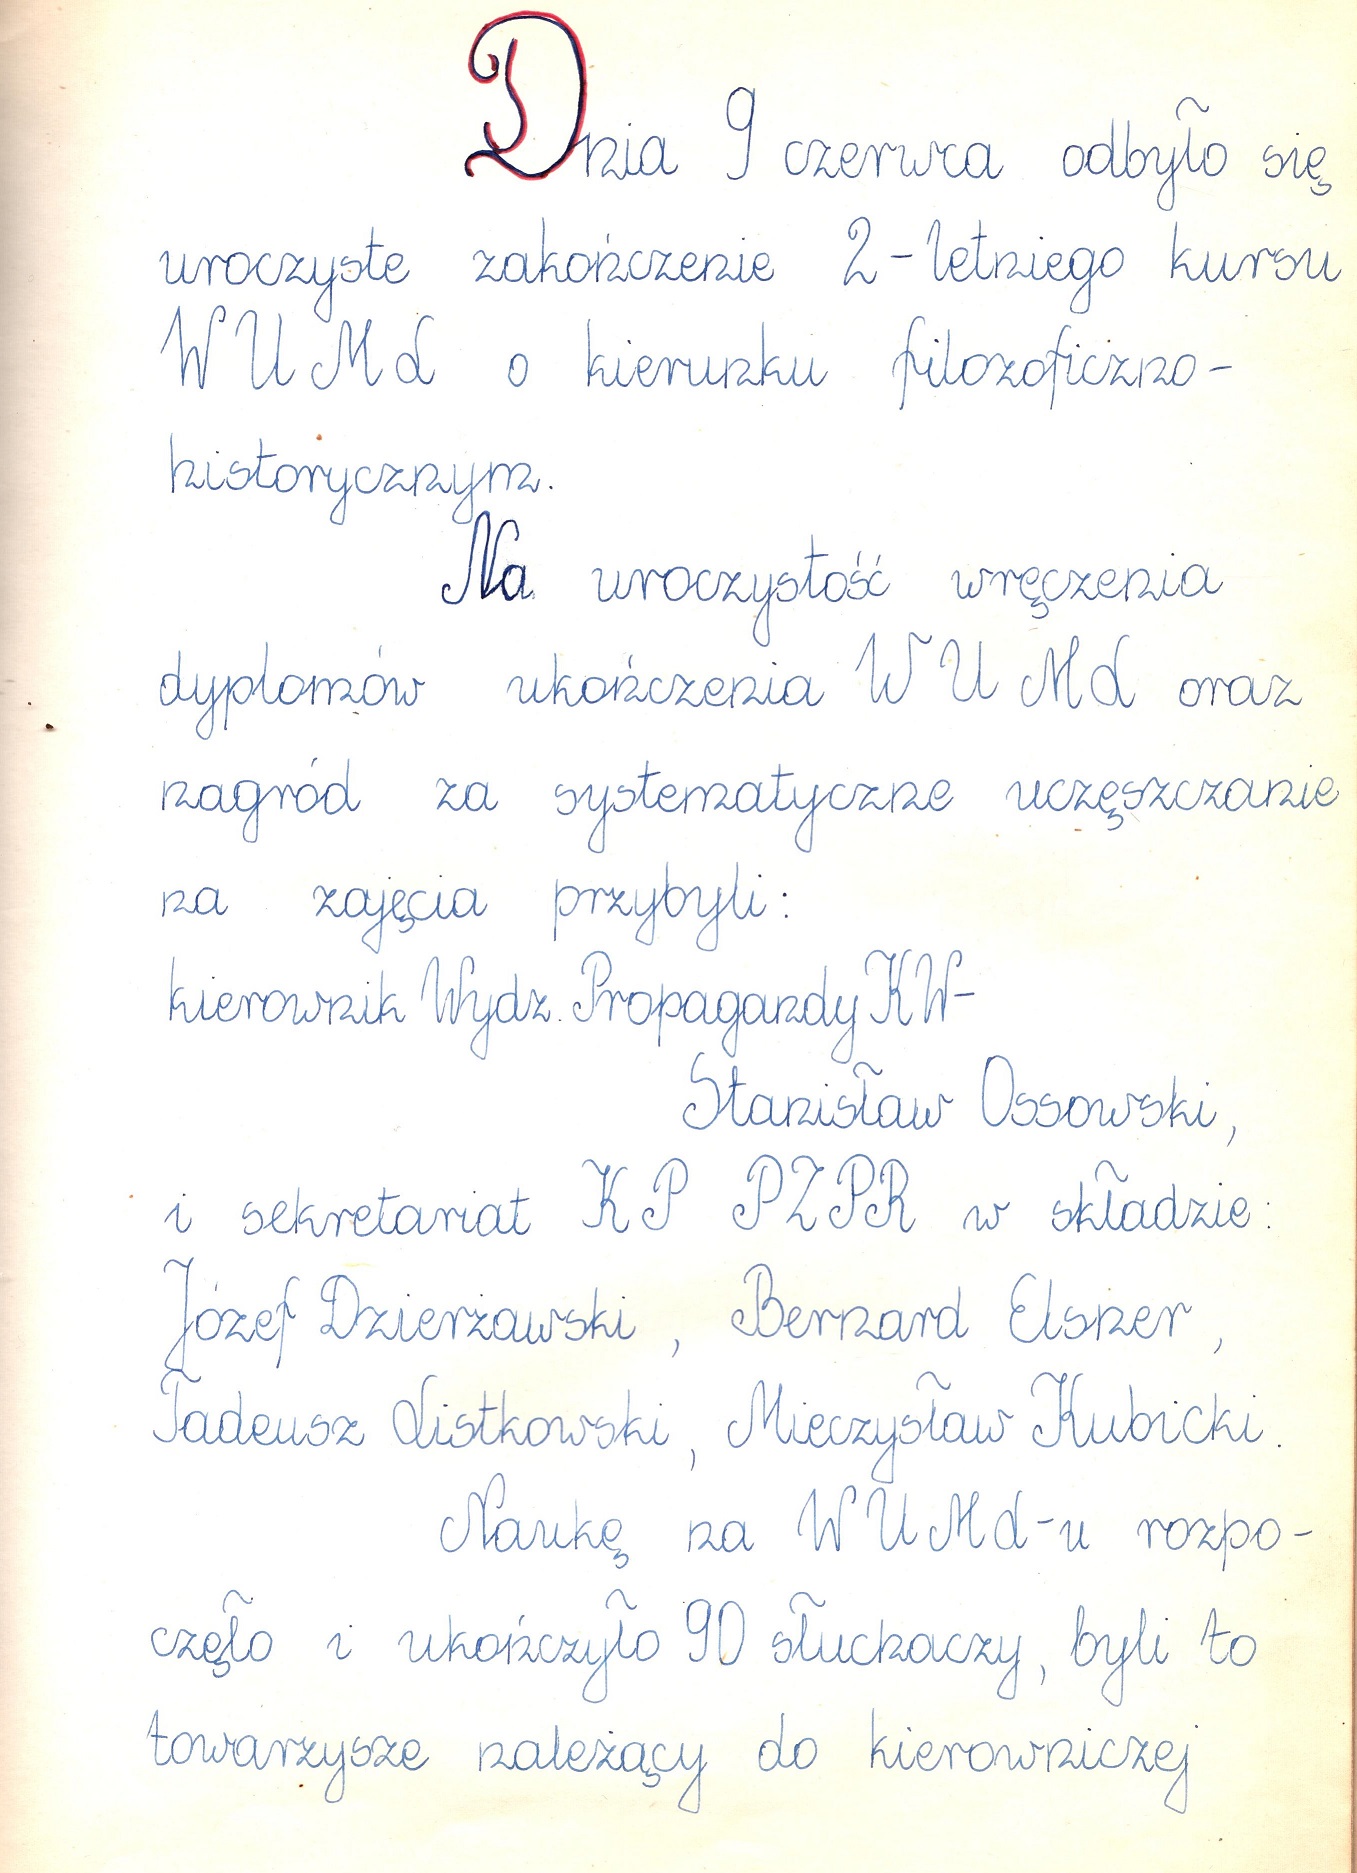 Dnia 9 czerwca odbyło się
uroczyste zakończenie 2-letniego kursu
WUML o kierunku filozoficzno-
historycznym.
Na uroczystość wręczenia
dyplomów ukończenia WUML oraz
nagród za systematyczne uczęszczanie
na zajęcia przybyli:
kierownik Wydz. Propagandy KW-
Stanisław Ossowski,
i sekretariat KP PZPR w składzie:
Józef Dzierżawski, Bernard Elsner,
Tadeusz Listkowski, Mieczysław Kubicki.
Naukę na WUML-u rozpo-
częło i ukończyło 90 słuchaczy, byli to
towarzysze należący do kierowniczej